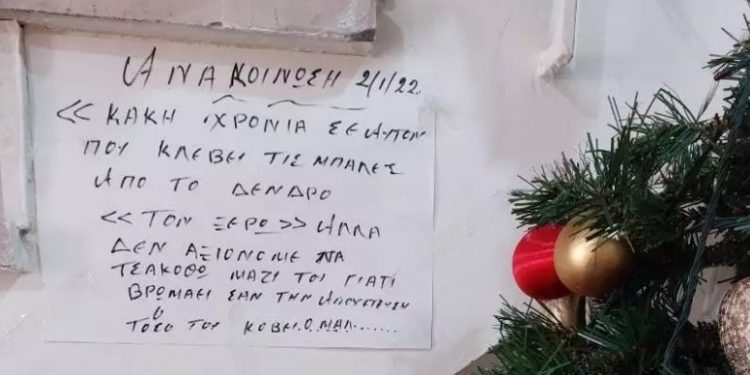 ΑΝΑΚΟΙΝΩΣΗ 2/1/22.
<< ΚΑΚΗ ΧΡΟΝΙΑ ΣΕ ΑΥΤΟΝ
ΠΟΥ ΚΛΕΒΕΙ ΤΙΣ ΜΠΑΛΕΣ
ΑΠΟ ΤΟ ΔΕΝΔΡΟ
<< ΤΟΝ ΞΕΡΩ >> ΑΛΛΑ
ΔΕΝ ΑΞΙΟΝΟΜΕ ΝΑ
ΤΣΑΚΟΘΩ ΜΑΖΙ ΤΟΥ ΓΙΑΤΙ
ΒΡΩΜΑΕΙ ΣΑΝ ΤΗΝ
ΤΟΣΟ ΤΟΥ ΚΟΒΕΙ.Ο.ΜΑΛ......